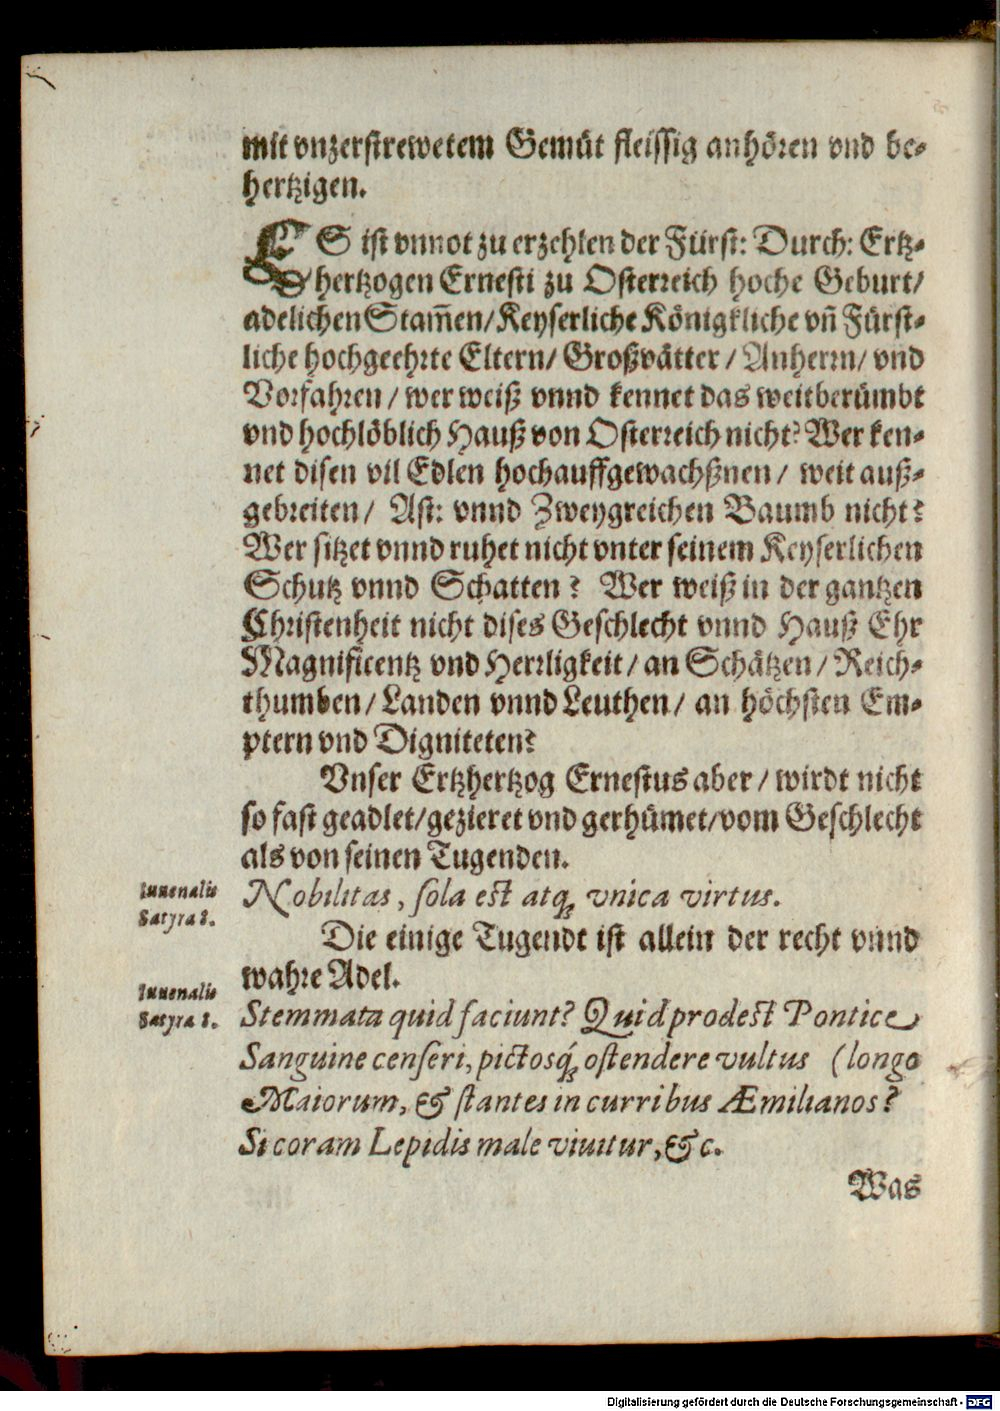 mit vnzerstrewetem Gemüt fleissig anhören vnd be-
hertzigen.
ES ist vnnot zu erzehlen der Fürst: Durch: Ertz-
hertzogen Ernesti zu Osterreich hoche Geburt/
adelichen Stam̃en/ Keyserliche Königkliche vñ Fürst-
liche hochgeehrte Eltern/ Großvätter/ Anherrn/ vnd
Vorfahren/ wer weiß vnnd kennet das weitberümbt
vnd hochlöblich Hauß von Osterreich nicht? Wer ken-
net disen vil Edlen hochauffgewachßnen/ weit auß-
gebreiten/ Ast: vnnd Zweygreichen Baumb nicht?
Wer sitzet vnnd ruhet nicht vnter seinem Keyserlichen
Schutz vnnd Schatten? Wer weiß in der gantzen
Christenheit nicht dises Geschlecht vnnd Hauß Ehr
Magnificentz vnd Herrligkeit/ an Schätzen/ Reich-
thumben/ Landen vnnd Leuthen/ an höchsten Em-
ptern vnd Digniteten?
Vnser Ertzhertzog Ernestus aber/ wirdt nicht
so fast geadlet/ gezieret vnd gerhümet/ vom Geschlecht
als von seinen Tugenden.
Iuuenalis
Satyra 8.
Nobilitas, sola est atq; vnica virtus.
Die einige Tugendt ist allein der recht vnnd
wahre Adel.
Iuuenalis
Satyra 8.
Stemmata quid faciunt? Quid prodest Pontice
Sanguine censeri, pictosq́; ostendere vultus (longo
Maiorum, & stantes in curribus Æmilianos?
Si coram Lepidis male viuitur, &c.
Was
Digitalisierung gefördert durch die Deutsche Forschungsgemeinschaft - DFG